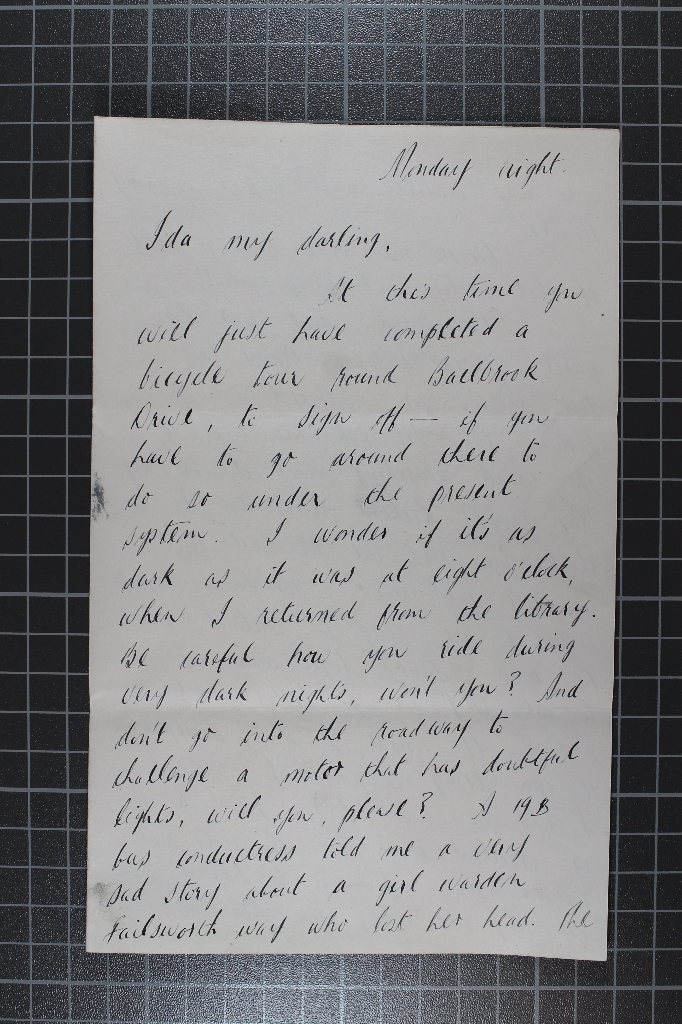 Monday night.
Ida my darling,
At this time you
will just have completed a
bicycle tour round Ballbrook
Drive, to sign off — if you
have to go around there to
do so under the present
system. I wonder if it's as
dark as it was at eight o'clock,
when I returned from the library.
Be careful how you ride during
very dark nights, won't you? And
don't go into the roadway to
challenge a motor that has doubtful
lights, will you, please? A 19B
bus conductress told me a very
sad story about a girl warden
Failsworth way who lost her head. The